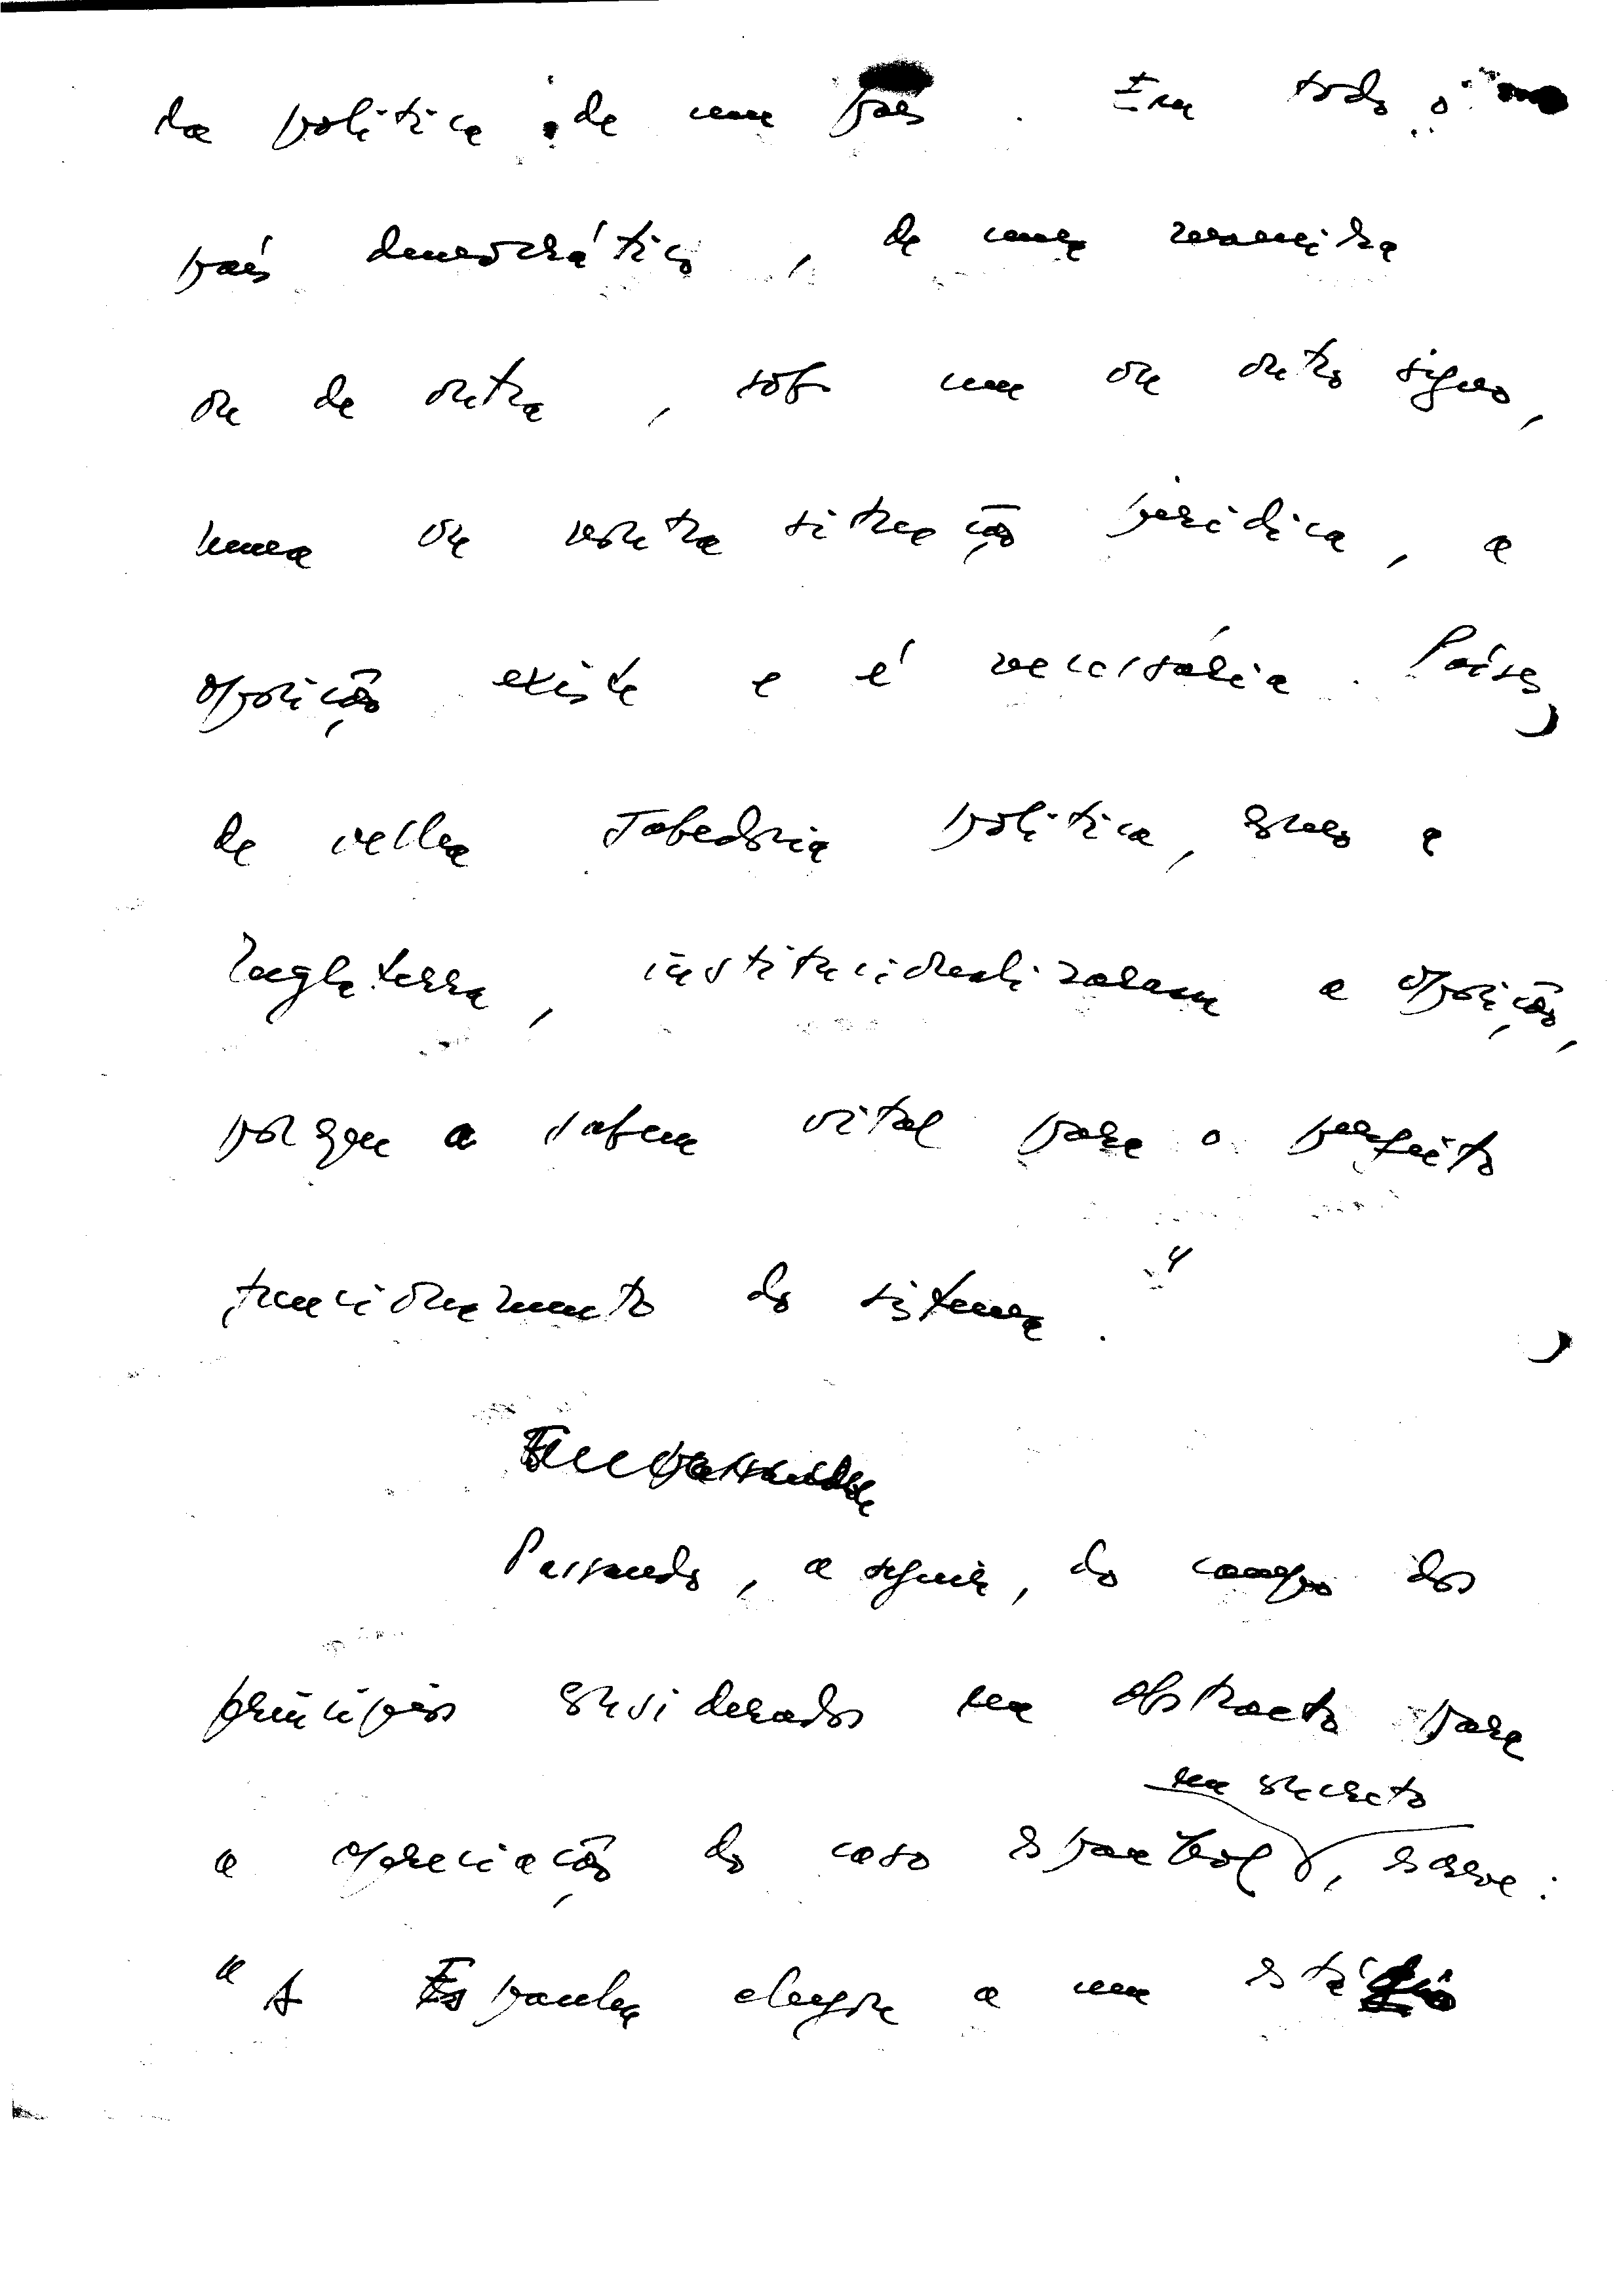 da política de um país. Em todo o
país democrático, de uma maneira
ou de outra, sob um ou outro signo,
numa ou noutra situação jurídica, a
oposição existe e é necessária. Países
de velha sabedoria política, como a
Inglaterra, institucionalizaram a oposição,
porque a sabem vital para o perfeito
funcionamento do sistema."
Passando, a seguir, do campo dos
princípios considerados em abstracto para
em concreto
a apreciação do caso espanhol, escreve:
"A Espanha chegou a um estádio